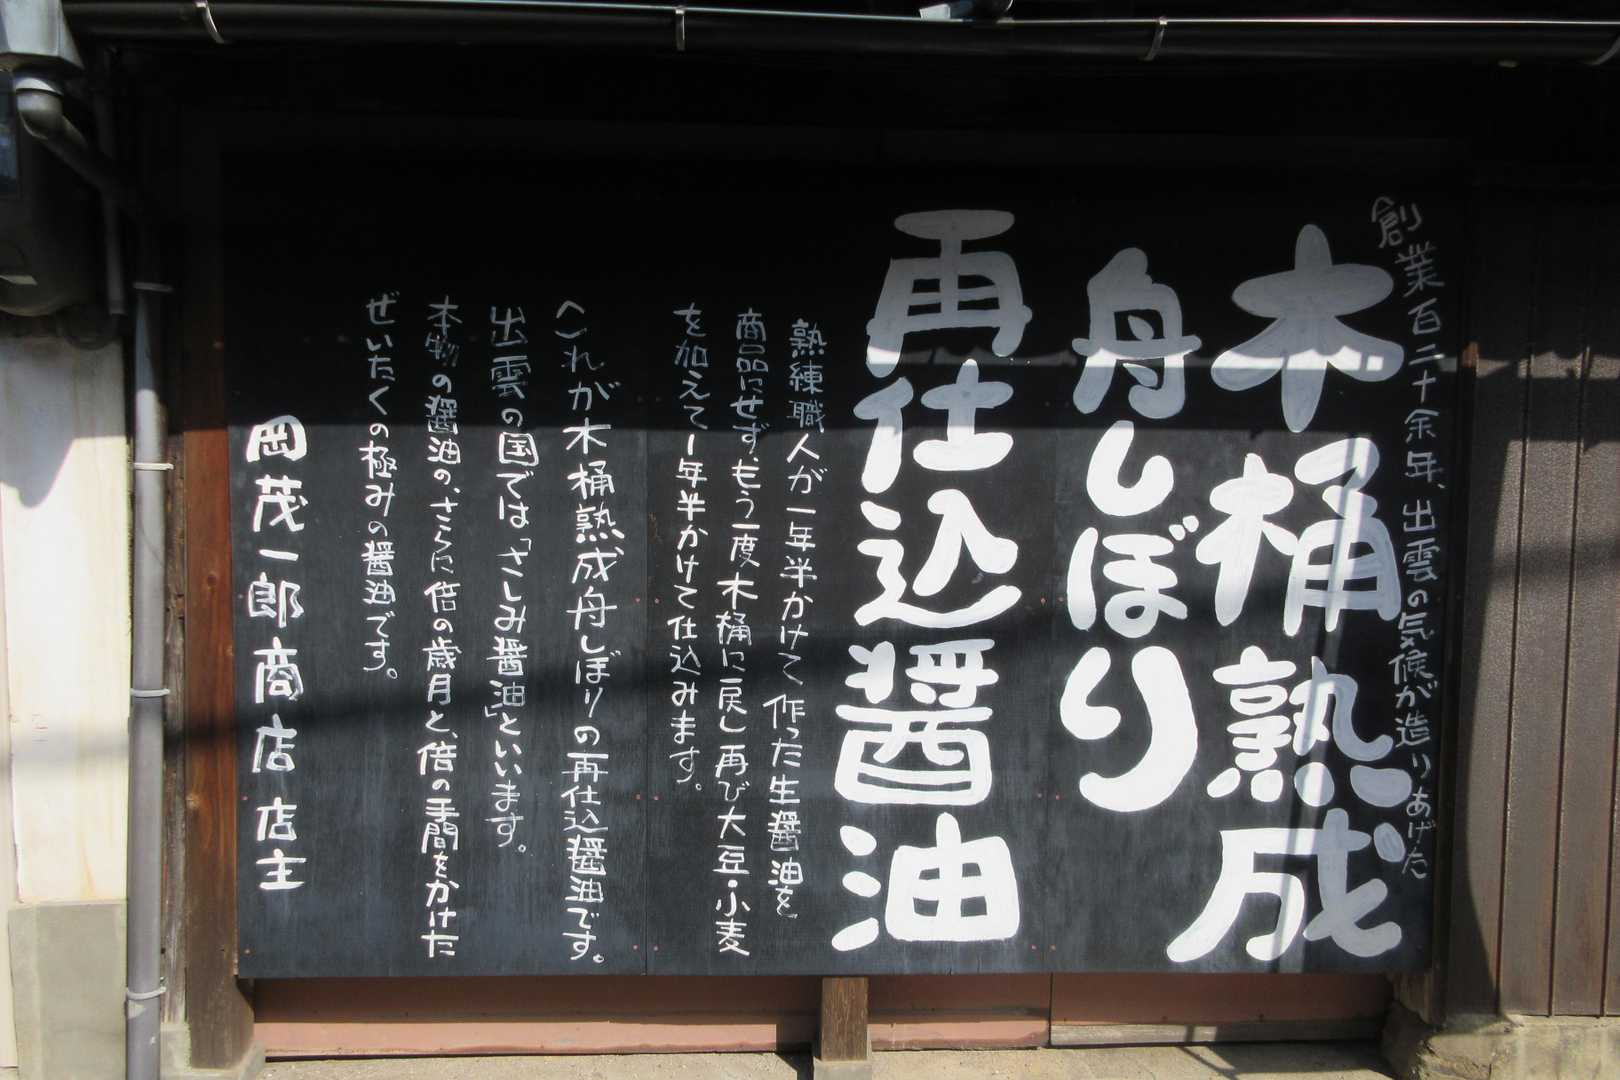 創業百二十余年、出雲の気候が造りあげた
木桶熟成
舟しぼり
再仕込醤油
熟練職人が一年半かけて作った生醤油を
商品にせず、もう一度木桶に戻し再び大豆・小麦
を加えて1年半かけて仕込みます。
これが木桶熟成舟しぼりの再仕込醤油です。
出雲の国では「さしみ醤油」といいます。
本物の醤油の、さらに倍の歳月と、倍の手間をかけた
ぜいたくの極みの醤油です。
岡茂一郎商店店主